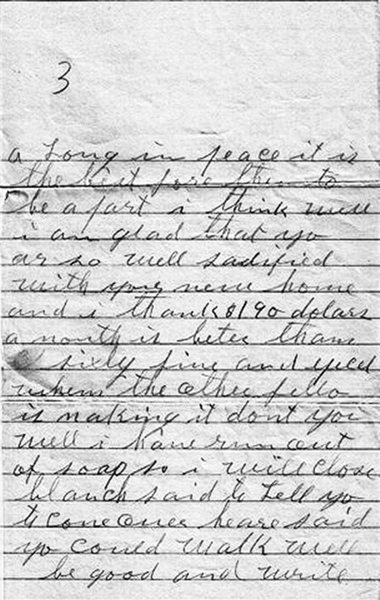 3
a Long in peace it is
the best fore them to
be a part i think well
i am glad that yo
ar so well sadified
with your new home
and i thank $190 dolars
a month is beter than
sixty five and yeed
when the other fello
is making it dont you
well i have run out
of soap so i will close
blanch said to tell yo
to come over heare said
yo could walk well
be good and write